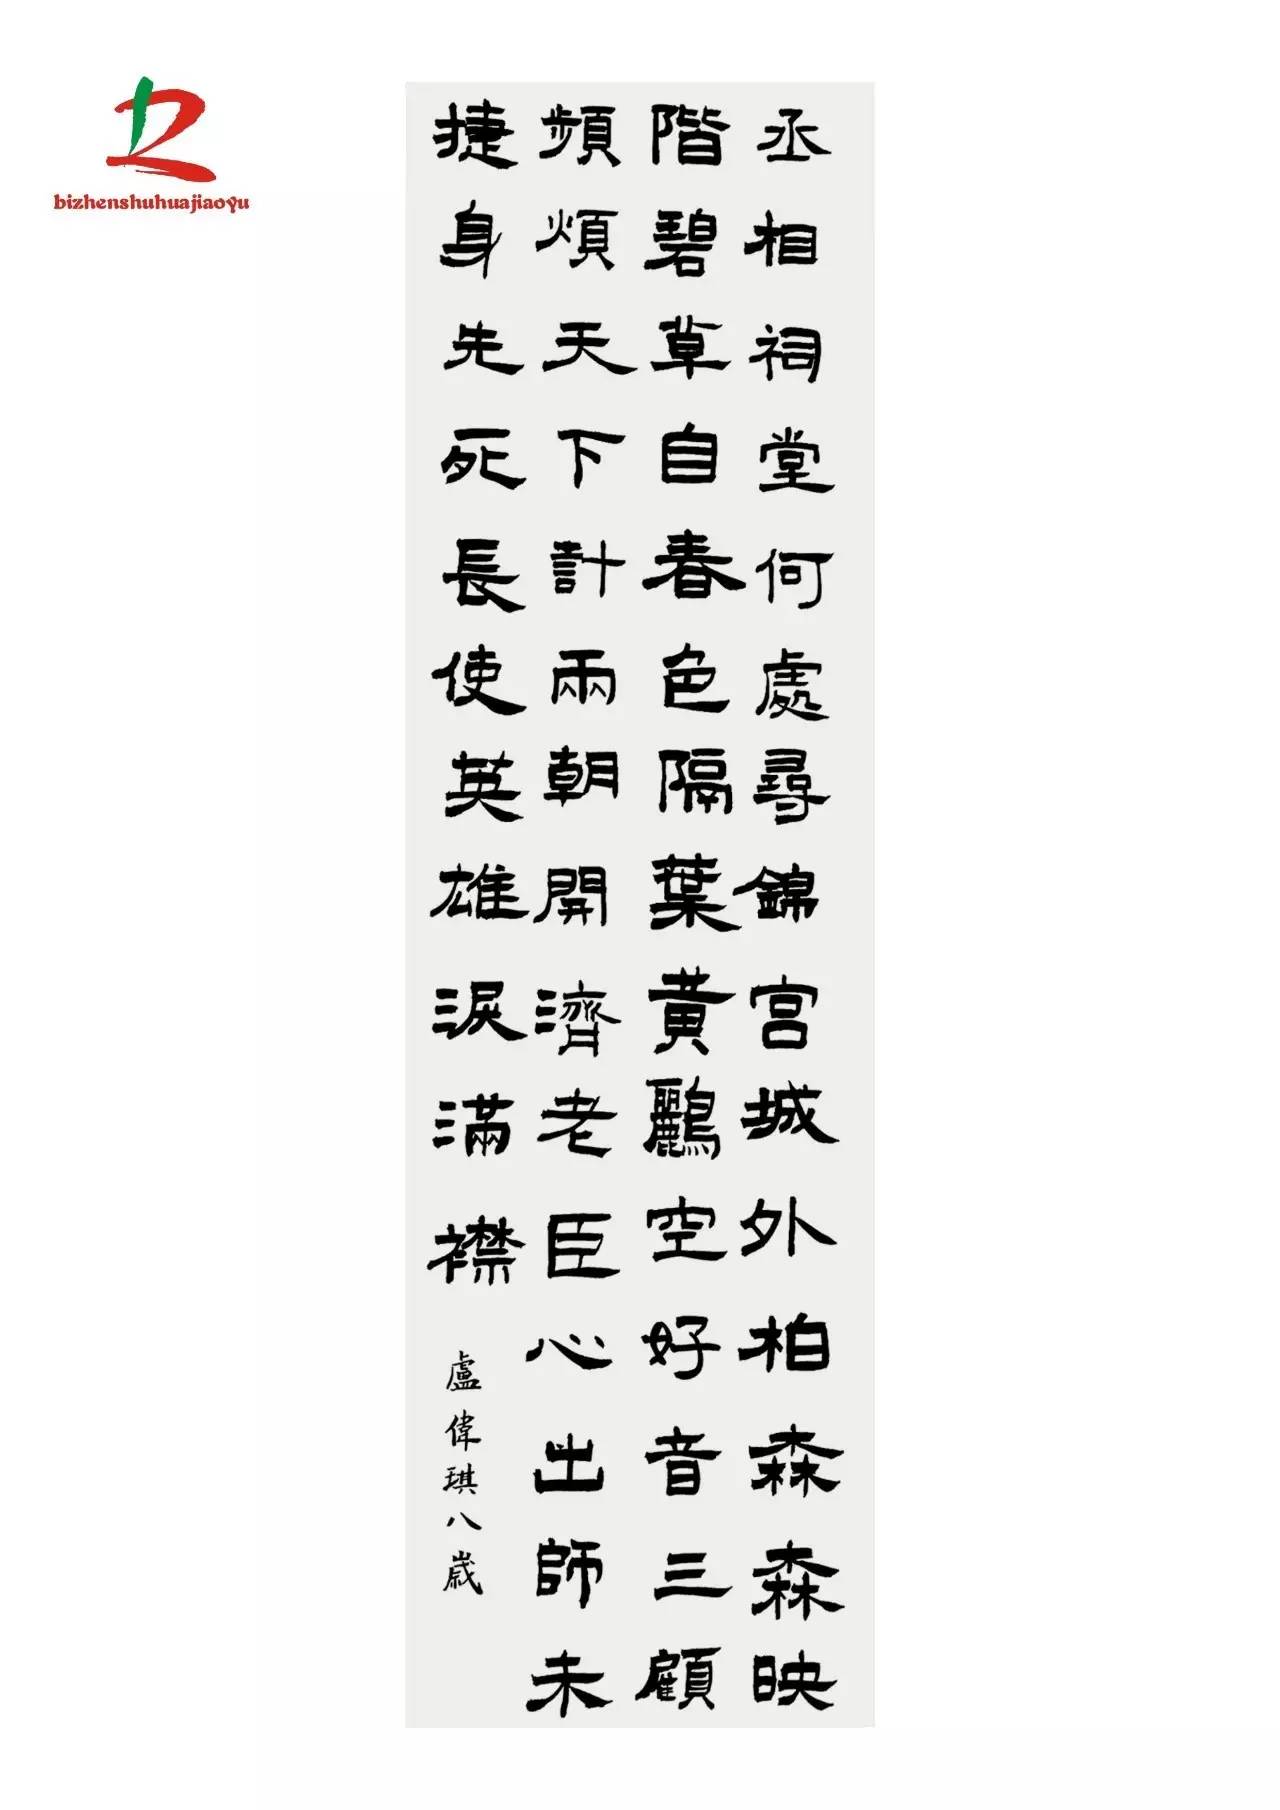 bizhenshuhuajiaoyu
丞相祠堂何處尋錦宮城外柏森森映
階碧草自春色隔葉黃鸝空好音三顧
頻煩天下計兩朝開濟老臣心出師未
捷身先死長使英雄淚滿襟
盧偉琪八歲